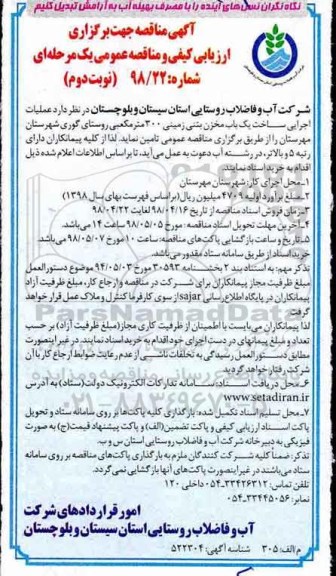 نگاه نگران نسل‌های آینده را با مصرف بهینه آب به آرامش تبدیل کنیم
آگهی مناقصه جهت برگزاری
ارزیابی کیفی و مناقصه عمومی یک مرحله‌ای
شماره: ۹۸/۲۲ (نوبت دوم)
شرکت آب و فاضلاب روستایی استان سیستان و بلوچستان در نظر دارد عملیات
اجرایی ساخت یک باب مخزن بتنی زمینی ۳۰۰ مترمکعبی روستای گوری شهرستان
مهرستان را از طریق برگزاری مناقصه عمومی تامین نماید. لذا از کلیه پیمانکاران دارای
رتبه ۵ و بالاتر، در رشته آب دعوت به عمل می‌آید، تا براساس اطلاعات اعلام شده ذیل
اقدام به خرید اسناد نمایند.
۱-محل اجرای کار: شهرستان مهرستان
۲-مبلغ برآورد اولیه: ۴۷۰۹ میلیون ریال(براساس فهرست بهای سال ۱۳۹۸)
۳-زمان فروش اسناد مناقصه از تاریخ ۹۸/۰۴/۱۶ لغایت ۹۸/۰۴/۲۲
۴-آخرین مهلت تحویل اسناد مناقصه: مورخ ۹۸/۰۵/۰۵ ساعت ۱۴ می‌باشد.
۵-تاریخ و ساعت بازگشایی پاکت‌های مناقصه: ساعت ۱۰ مورخ ۹۸/۰۵/۰۷ می‌باشد.
خرید اسناد از طریق سامانه ستاد مقدور می‌باشد.
تذکر مهم: به استناد بند ۲ بخشنامه ۳۰۵۹۳ مورخ ۹۴/۰۵/۰۳ موضوع دستورالعمل
مبلغ ظرفیت مجاز پیمانکاران برای شرکت در مناقصه و ارجاع کار، مبلغ ظرفیت آزاد
پیمانکاران در پایگاه اطلاع رسانی sajar از سوی کارفرما کنترل و ملاک عمل قرار خواهد
گرفت.
لذا پیمانکاران می‌بایست با اطمینان از ظرفیت کاری مجاز(مبلغ ظرفیت آزاد) بر حسب
تعداد و مبلغ پیمانهای در دست اجرای خود اقدام به خرید اسناد نمایند. در غیر اینصورت
مطابق دستورالعمل رسیدگی به تخلفات ناشی از عدم رعایت ضوابط ارجاع کار با آن
شرکت رفتار خواهد گردید.
۶-محل دریافت اسناد: سامانه تدارکات الکترونیک دولت(ستاد) به آدرس
www.setadiran.ir
۷-محل تسلیم اسناد تکمیل شده: بارگذاری کلیه پاکت‌ها بر روی سامانه ستاد و تحویل
پاکت اسناد ارزیابی کیفی و پاکت تضمین (الف) و پاکت پیشنهاد قیمت(ج) به صورت
فیزیکی به دبیرخانه شرکت آب و فاضلاب روستایی استان س و ب.
تذکر: ضمنا کلیه شرکت کنندگان ملزم به بارگذاری پاکت‌های مناقصه بر روی سامانه
ستاد می‌باشند در غیر اینصورت پاکت‌های آنها بازگشایی نمی‌گردد.
تلفن تماس: ۳۳۴۲۶۳۱۲-۰۵۴ داخلی ۱۲۰
نمابر: ۳۳۴۴۵۰۵۶-۰۵۴
امور قراردادهای شرکت
آب و فاضلاب روستایی استان سیستان و بلوچستان
م الف: ۳۰۵ شناسه آگهی: ۵۲۲۳۰۴